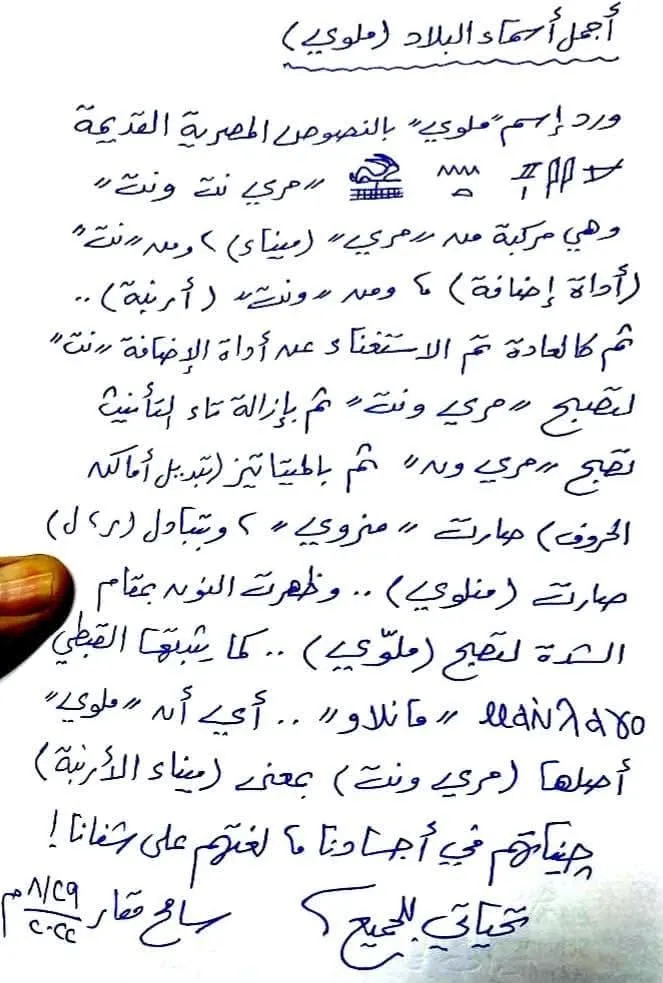 أجمل أسماء البلاد (ملوي)
ورد إسم "ملوي" بالنصوص المصرية القديمة
"مري نت ونت"
وهي مركبة من "مري" (ميناء) ، ومن "نت"
(أداة إضافة) ، ومن "ونت" (أرنبة) ..
ثم كالعادة تم الاستغناء عن أداة الإضافة "نت"
لتصبح "مري ونت" ثم بإزالة تاء التأنيث
تصبح "مري ون" ثم بالميتاتيز (تبديل أماكن
الحروف) صارت "منروي" ، وبتبادل (ر ، ل)
صارت (منلوي) .. وظهرت النون بمقام
الشدة لتصبح (ملّوي) .. كما يثبتها القبطي
ⲙⲁⲛⲗⲁⲩ "مانلاو" .. أي أن "ملوي"
أصلها (مري ونت) بمعنى (ميناء الأرنبة)
جيناتهم في أجسادنا ، لغتهم على شفانا !
تحياتي للجميع ،
سامح مقار ٨/٢٩ م
٢٠٢٢